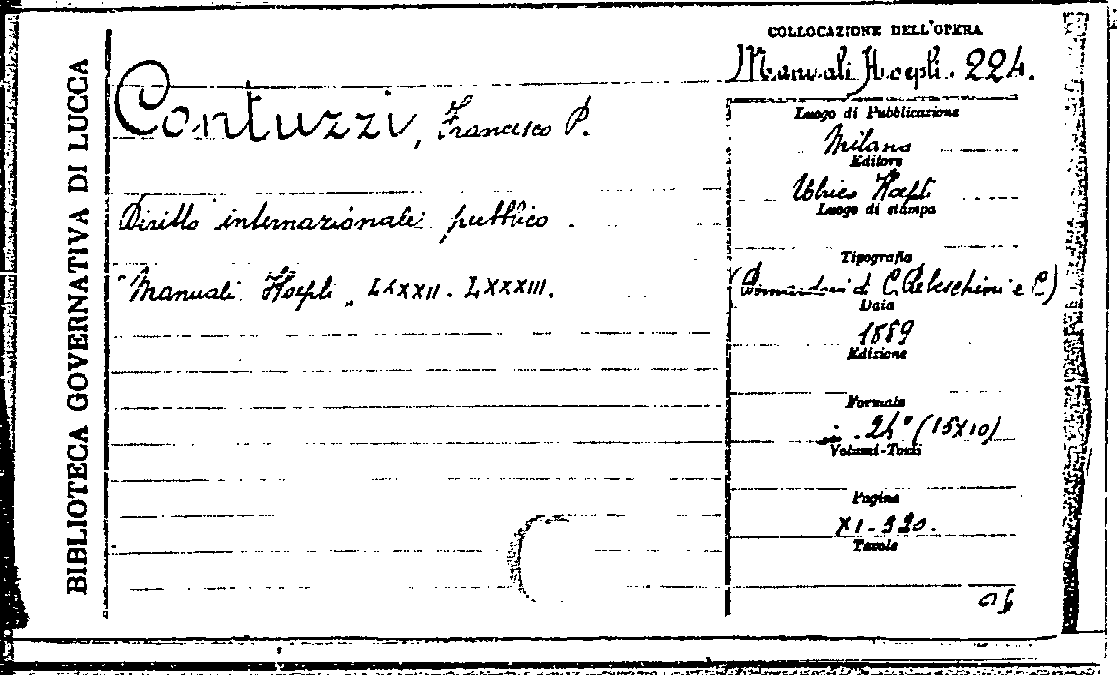 BIBLIOTECA GOVERNATIVA DI LUCCA
COLLOCAZIONE DELL'OPERA
Manuali Hoepli. 224.
Contuzzi, Francesco P.
Diritto internazionale pubblico.
"Manuali Hoepli" LXXXII. LXXXIII.
Luogo di Pubblicazione
Milano
Editore
Ulrico Hoepli
Luogo di stampa
Tipografia
C. Rebeschini e C)
Data
1889
Edizione
Formato
in 24° (15X10)
Volumi-Tomi
Pagine
XI-320.
Tavole